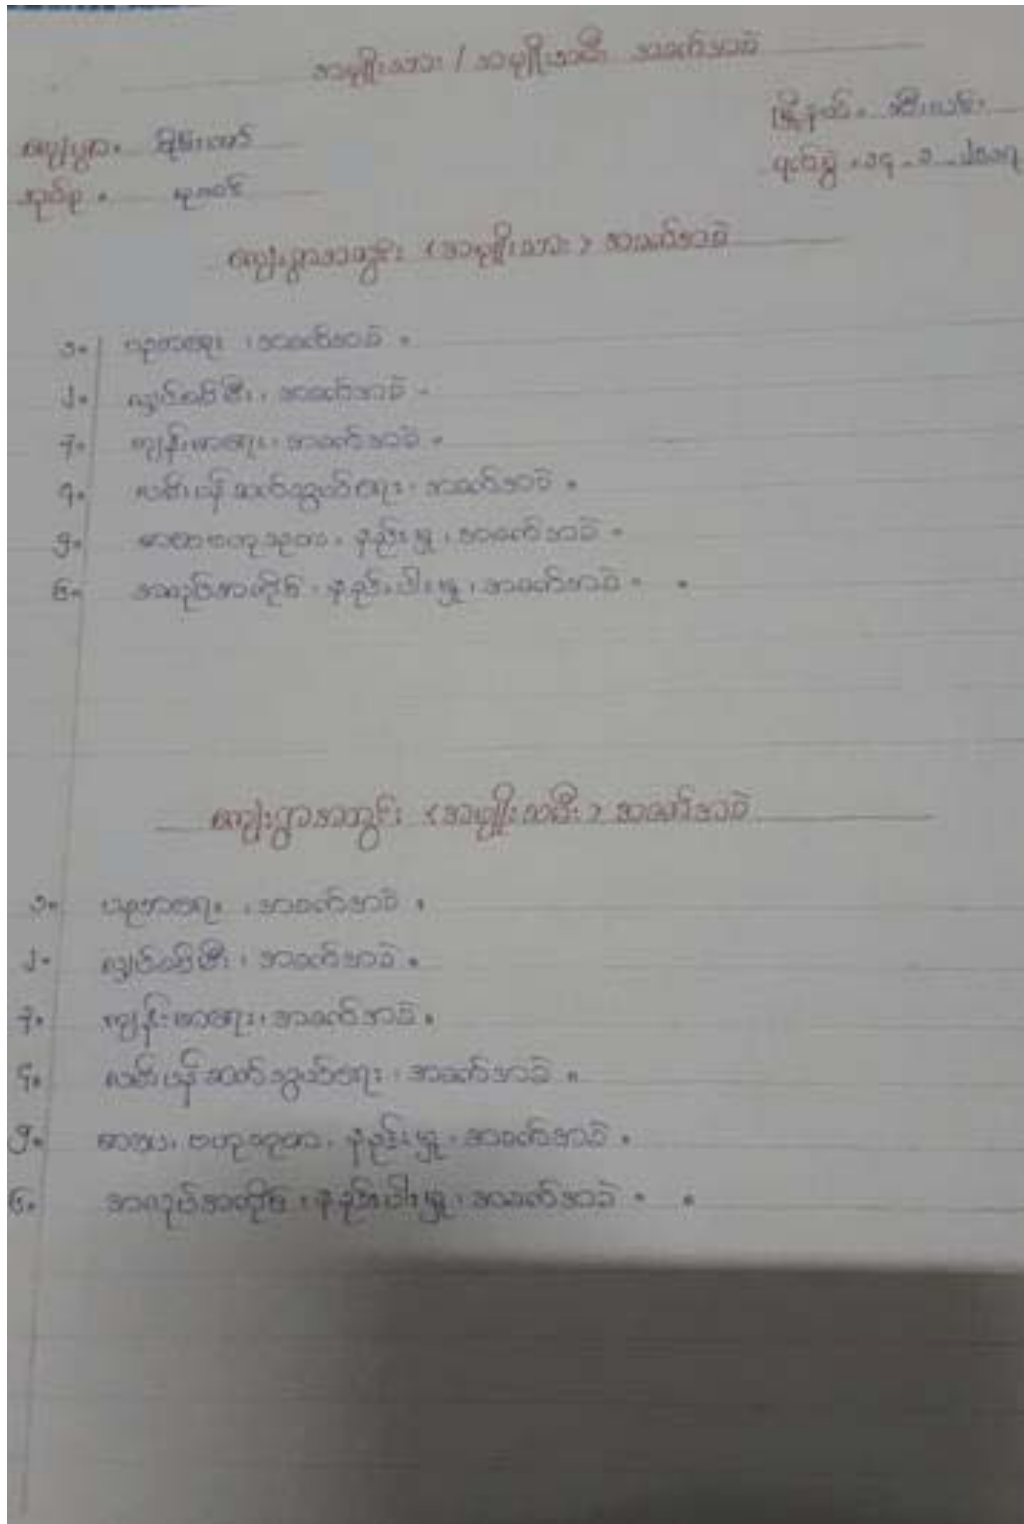 အမျိုးသား / အမျိုးသမီး အခက်အခဲ
မြို့နယ်။ ဘီးလင်း
ကျေးရွာ။
အုပ်စု။ မုကင်
ရက်စွဲ။ ၁၄-၁-၂၀၁၇
ကျေးရွာအတွင်း (အမျိုးသား) အခက်အခဲ
၁။ ပညာရေး၊ အခက်အခဲ။
၂။ လျှပ်စစ်မီး၊ အခက်အခဲ။
၃။ ကျန်းမာရေး၊ အခက်အခဲ။
၄။ လမ်းပန်းဆက်သွယ်ရေး၊ အခက်အခဲ။
၅။ ဗဟုသုတ၊ နည်းမှု၊ အခက်အခဲ။
၆။ အလုပ်အကိုင်၊ ရှားပါးမှု၊ အခက်အခဲ။ ။
ကျေးရွာအတွင်း (အမျိုးသမီး) အခက်အခဲ
၁။ ပညာရေး၊ အခက်အခဲ။
၂။ လျှပ်စစ်မီး၊ အခက်အခဲ။
၃။ ကျန်းမာရေး၊ အခက်အခဲ။
၄။ လမ်းပန်းဆက်သွယ်ရေး၊ အခက်အခဲ။
၅။ ဗဟုသုတ၊ နည်းမှု၊ အခက်အခဲ။
၆။ အလုပ်အကိုင်၊ ရှားပါးမှု၊ အခက်အခဲ။ ။